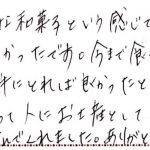 な和菓子という感じで
かったです。今まで食べ
にとれば良かったと
って人にお土産として
んでくれました。ありがと